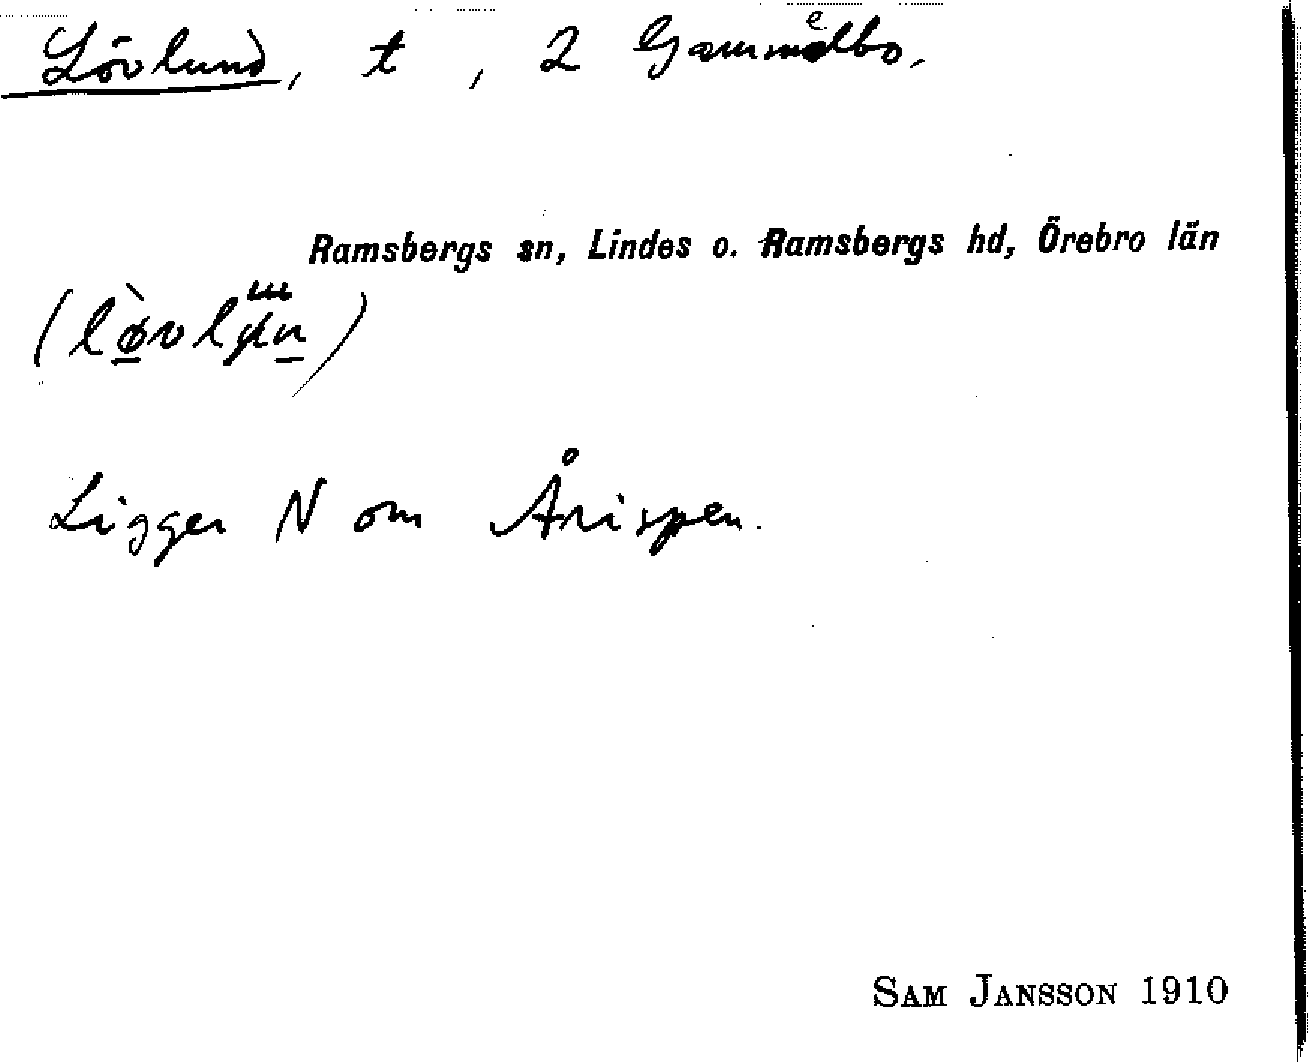 Lövlund, t, 2 Gammelbo.
Ramsbergs sn, Lindes o. Ramsbergs hd, Örebro län
Ligger N om Årispen.
SAM JANSSON 1910